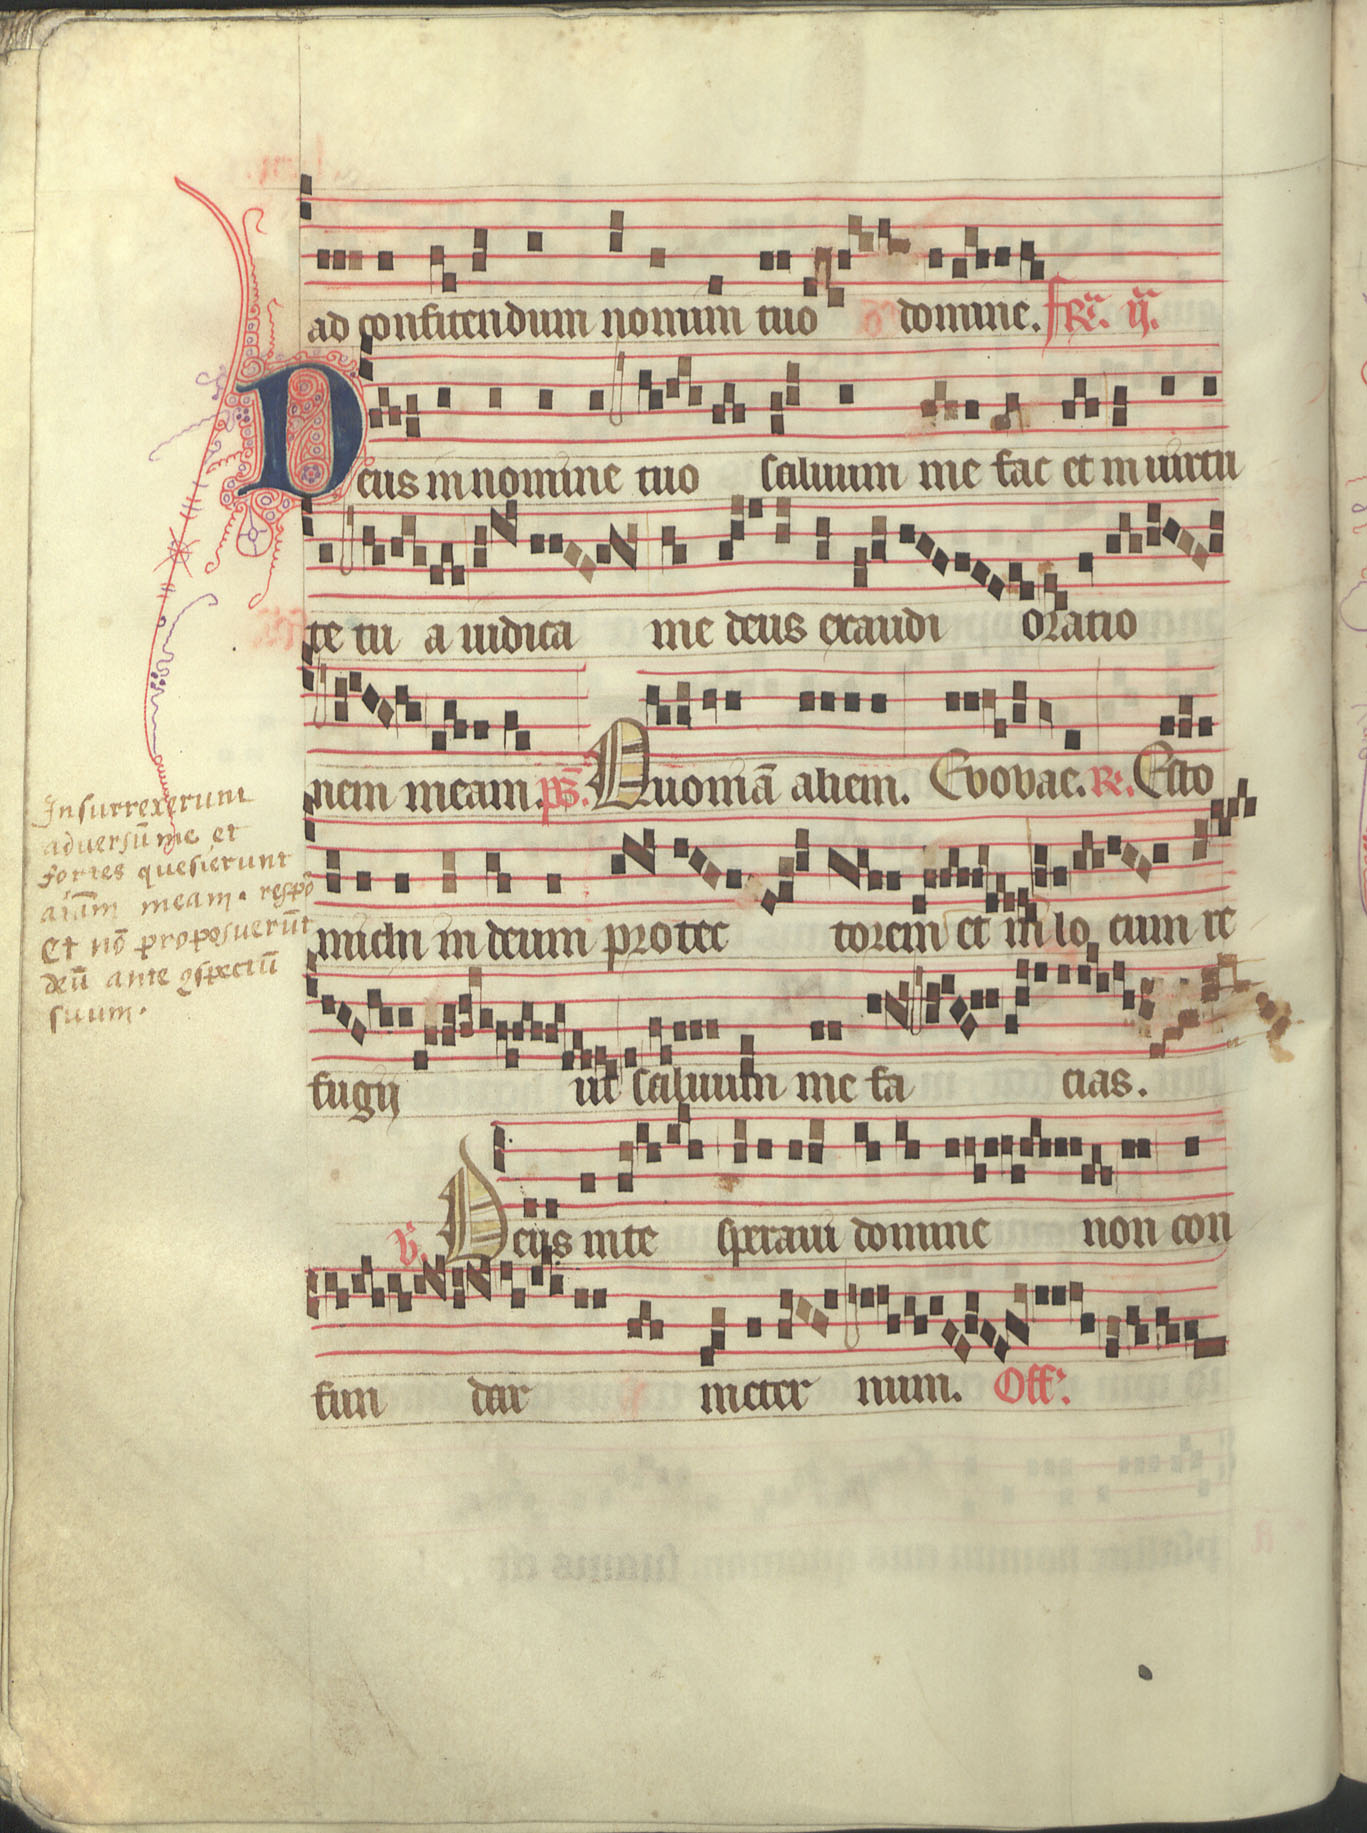 ad confitendum nomini tuo domine. fr̄a. ij.
Deus in nomine tuo saluum me fac et in uirtu
te tu a iudica me deus exaudi oratio
nem meam. ps. Quoniā alieni. Evovae. R. Esto
michi in deum protec torem et in lo cum re
fugij ut saluum me fa cias.
V. Deus in te speraui domine non con
fun dar in eter num. Off.
Insurrexerunt
adversū me et
fortes quesierunt
aīam meam. respō
Et nō proposuerūt
deū ante ꝯspectū
suum.